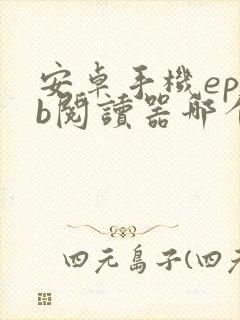 安卓手機ep
b閱讀器哪個
四元島子(四元